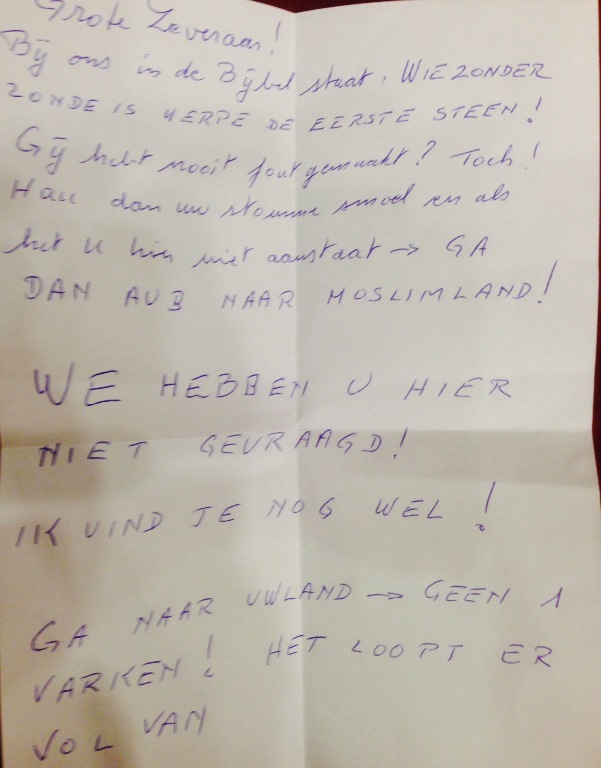 Grote Zeveraar!
Bij ons in de Bijbel staat, WIE ZONDER
ZONDE IS WERPE DE EERSTE STEEN!
Gij hebt nooit fout gemaakt? Toch!
Hau dan uw stomme smoel en als
het u hier niet aanstaat → GA
DAN AUB NAAR MOSLIMLAND!
WE HEBBEN U HIER
NIET GEVRAAGD!
IK VIND JE NOG WEL!
GA NAAR UWLAND → GEEN 1
VARKEN! HET LOOPT ER
VOL VAN